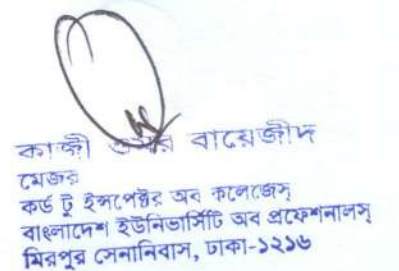 কাজী বায়েজীদ
মেজর
কর্ড টু ইন্সপেক্টর অব কলেজেস্
বাংলাদেশ ইউনিভার্সিটি অব প্রফেশনালস্
মিরপুর সেনানিবাস, ঢাকা-১২১৬